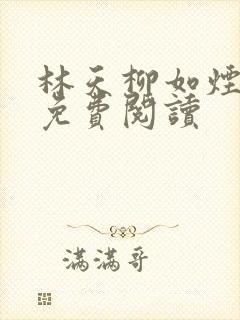 林天柳如煙
免費閱讀
滿滿哥